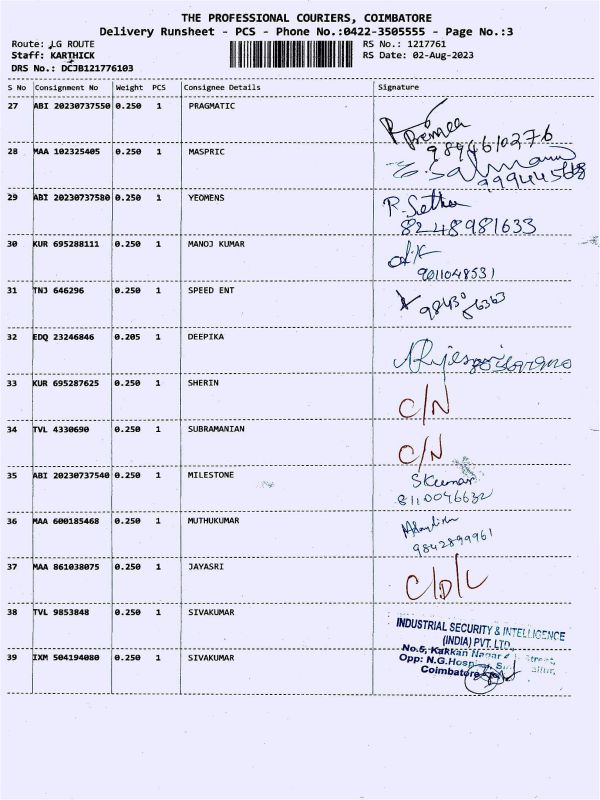 THE PROFESSIONAL COURIERS, COIMBATORE
Delivery Runsheet - PCS - Phone No.:0422-3505555 - Page No.:3
Route: LG ROUTE RS No.: 1217761
Staff: KARTHICK RS Date: 02-Aug-2023
DRS No.: DCJB121776103
S No Consignment No Weight PCS Consignee Details Signature
27 ABI 20230737550 0.250 1 PRAGMATIC
Premea
9894610276
28 MAA 102325405 0.250 1 MASPRIC
E. Salman
29 ABI 20230737580 0.250 1 YEOMENS
R. Sethu
8248981633
30 KUR 695288111 0.250 1 MANOJ KUMAR
9011048531
31 TNJ 646296 0.250 1 SPEED ENT
32 EDQ 23246846 0.205 1 DEEPIKA
33 KUR 695287625 0.250 1 SHERIN
C/N
34 TVL 4330690 0.250 1 SUBRAMANIAN
C/N
35 ABI 20230737540 0.250 1 MILESTONE
SKumar
8110046632
36 MAA 600185468 0.250 1 MUTHUKUMAR
9842899961
37 MAA 861038075 0.250 1 JAYASRI
C/D/L
38 TVL 9853848 0.250 1 SIVAKUMAR
INDUSTRIAL SECURITY & INTELLIGENCE
(INDIA) PVT. LTD.
39 IXM 504194080 0.250 1 SIVAKUMAR
No.5, Kakkan Nagar Street,
Opp: N.G.Hosp
Coimbatore